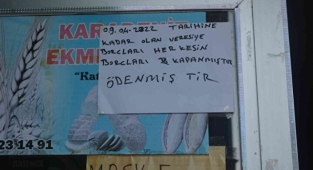 KARADENİZ
EKM
"Kat
09.04.2022 TARİHİNE
KADAR OLAN VERESİYE
BORÇLARI HERKESİN
BORÇLARI KAPANMIŞTIR
ÖDENMİŞ TİR
23 14 91